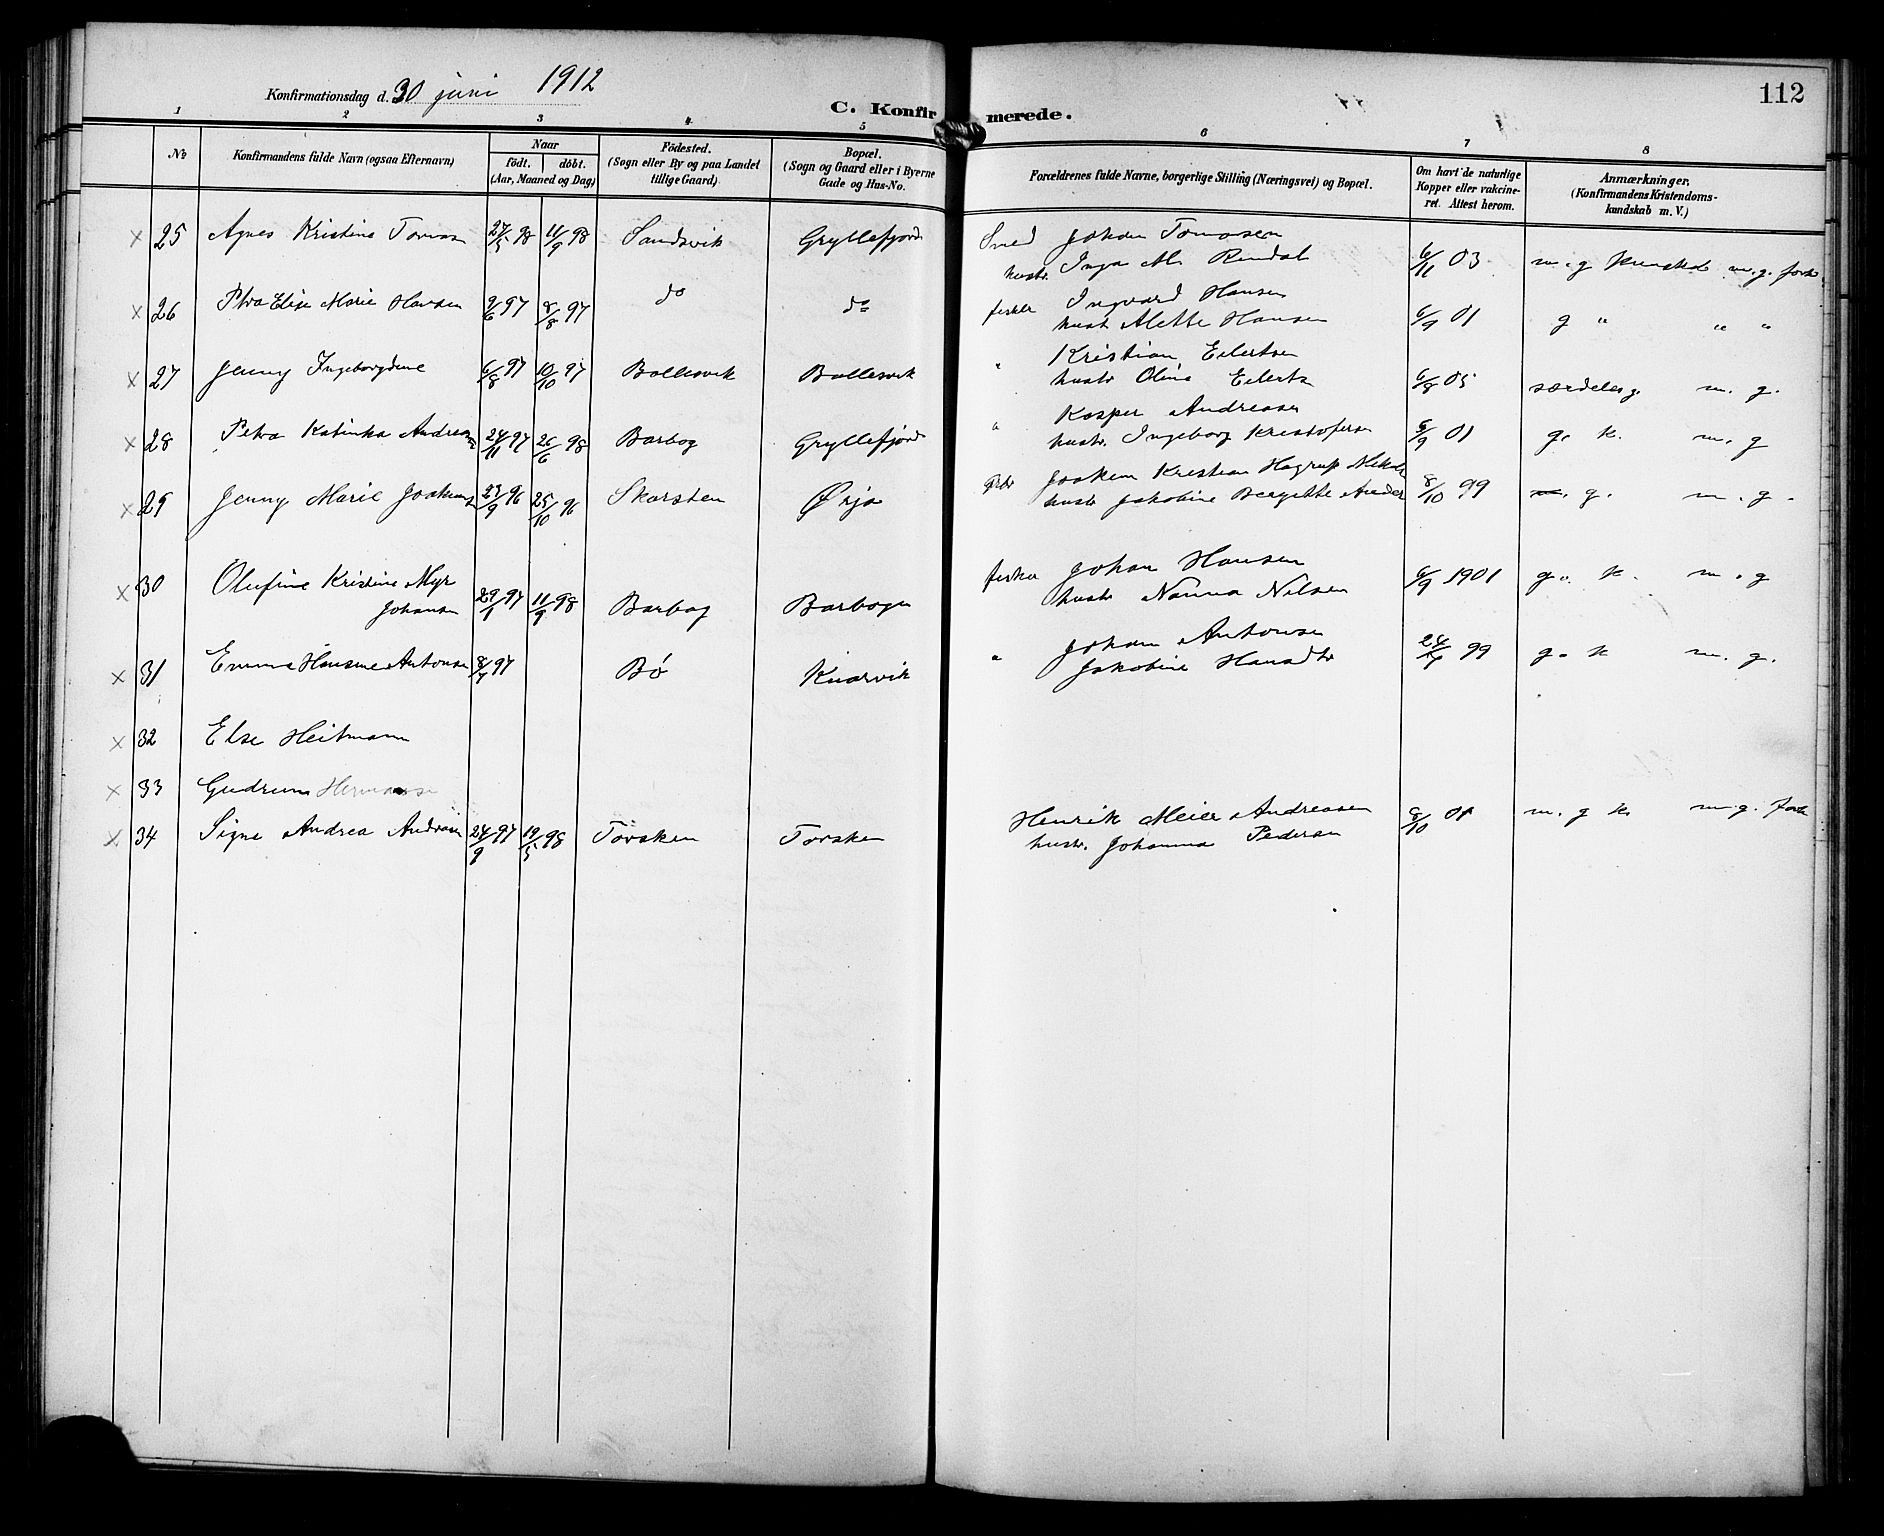 Konfirmationsdag d. 30 juni 1912
C. Konfirmerede.
112
1 2 3 4 5 6 7 8
No
Konfirmandens fulde Navn (ogsaa Efternavn)
Naar
født. døbt.
(Aar, Maaned og Dag)
Fødested.
(Sogn eller By og paa Landet
tillige Gaard)
Bopæl.
(Sogn og Gaard eller i Byerne
Gade og Hus-No.
Forældrenes fulde Navne, borgerlige Stilling (Næringsvei) og Bopæl.
Om havt de naturlige
Kopper eller vakcine-
ret. Attest herom.
Anmærkninger.
(Konfirmandens Kristendoms-
kundskab m. V.)
× 25 Agnes Kristine 27/5 98 11/9 98 Sandsvik Gryllefjord Smed Johan Tomasen
hustr. Inga M. Rindal 6/11 03 m. g kundskab m. g. forh
× 26 Petra Elise Marie Hansen 2/6 97 8/8 97 do do fisker Ingvard Hansen
hust Alette Hansen 6/9 01 g " " "
× 27 Jenny Ingeborgdine 6/8 97 10/10 97 Ballesvik Ballesvik " Kristian Eilertsen
hustr Oline Eilerts 6/8 05 særdeles g. m. g.
× 28 Petra Katinka Andreasen 24/11 97 26/6 98 Barbog Gryllefjord " Kasper Andreasen
hustr. Ingeborg Kristofersen 6/9 01 g. k. m. g
× 29 Jenny Marie 23/9 96 25/10 96 Skarsten Joakim Kristian Hagrup
hustr Jakobine Bergitte Ander 8/10 99 g. m. g.
× 30 Olufine Kristine Myr
Johansen 29/1 97 11/9 98 Barbog Barbogen fisker Johan Hansen
hustr Nanna Nilsen 6/9 1901 g. k. m. g
× 31 Emma Hansine Antonsen 8/7 97 Bø Knarvik " Johan Antonsen
Jakobine Hansdtr 99 g. k m. g.
× 32 Else Heitmann
× 33 Gudrun Hermansen
× 34 Signe Andrea Andreasen 24/9 97 19/5 98 Torsken Torsken Henrik Meier Andreasen
hustr. Johanna Pedersen 8/10 01 m. g k. m. g. forh